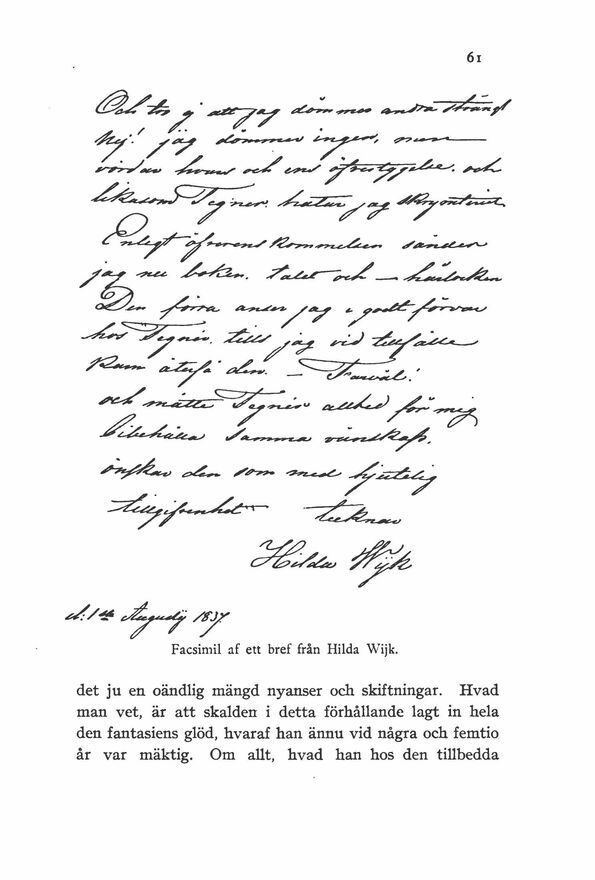 61
Och tro ej att jag dömmer andra strängt
Nej! jag dömmer ingen, men
vördar hvars och ens öfvertygelse. och
likasom Tegnér. hatar jag skrymteriet.
Enligt öfverenskommelsen sänder
jag nu boken. talet och — hårlocken
Den förra anser jag i godt förvar
hos Tegnér. tills jag vid tillfälle
kan återfå den. — Farväl!
och måtte Tegnér alltid för mig
bibehålla samma vänskap.
önskar den som med hjertelig
tillgifvenhet tecknar
Hilda Wijk
d: 1ste Augusti 1837.
Facsimil af ett bref från Hilda Wijk.
det ju en oändlig mängd nyanser och skiftningar. Hvad
man vet, är att skalden i detta förhållande lagt in hela
den fantasiens glöd, hvaraf han ännu vid några och femtio
år var mäktig. Om allt, hvad han hos den tillbedda